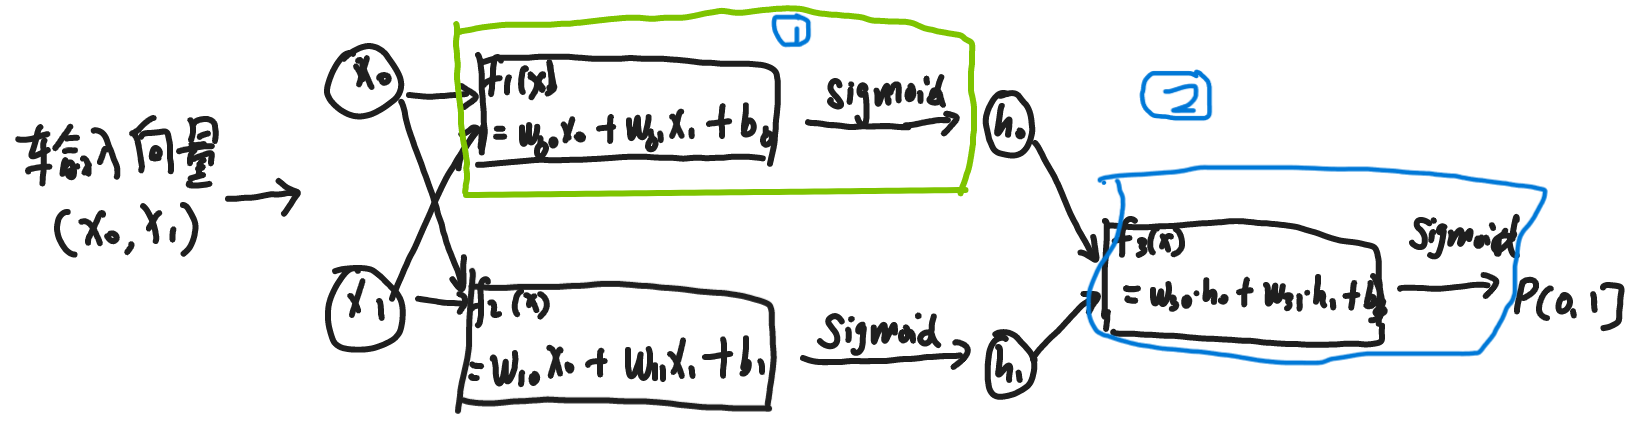 输入向量
(x₀, x₁)
x₀
x₁
①
f₁(x)
= w₀₀x₀ + w₀₁x₁ + b₀
Sigmoid
h₀
f₂(x)
= w₁₀x₀ + w₁₁x₁ + b₁
Sigmoid
h₁
2
f₃(x)
= w₃₀·h₀ + w₃₁·h₁ + b₃
Sigmoid
P(0,1]